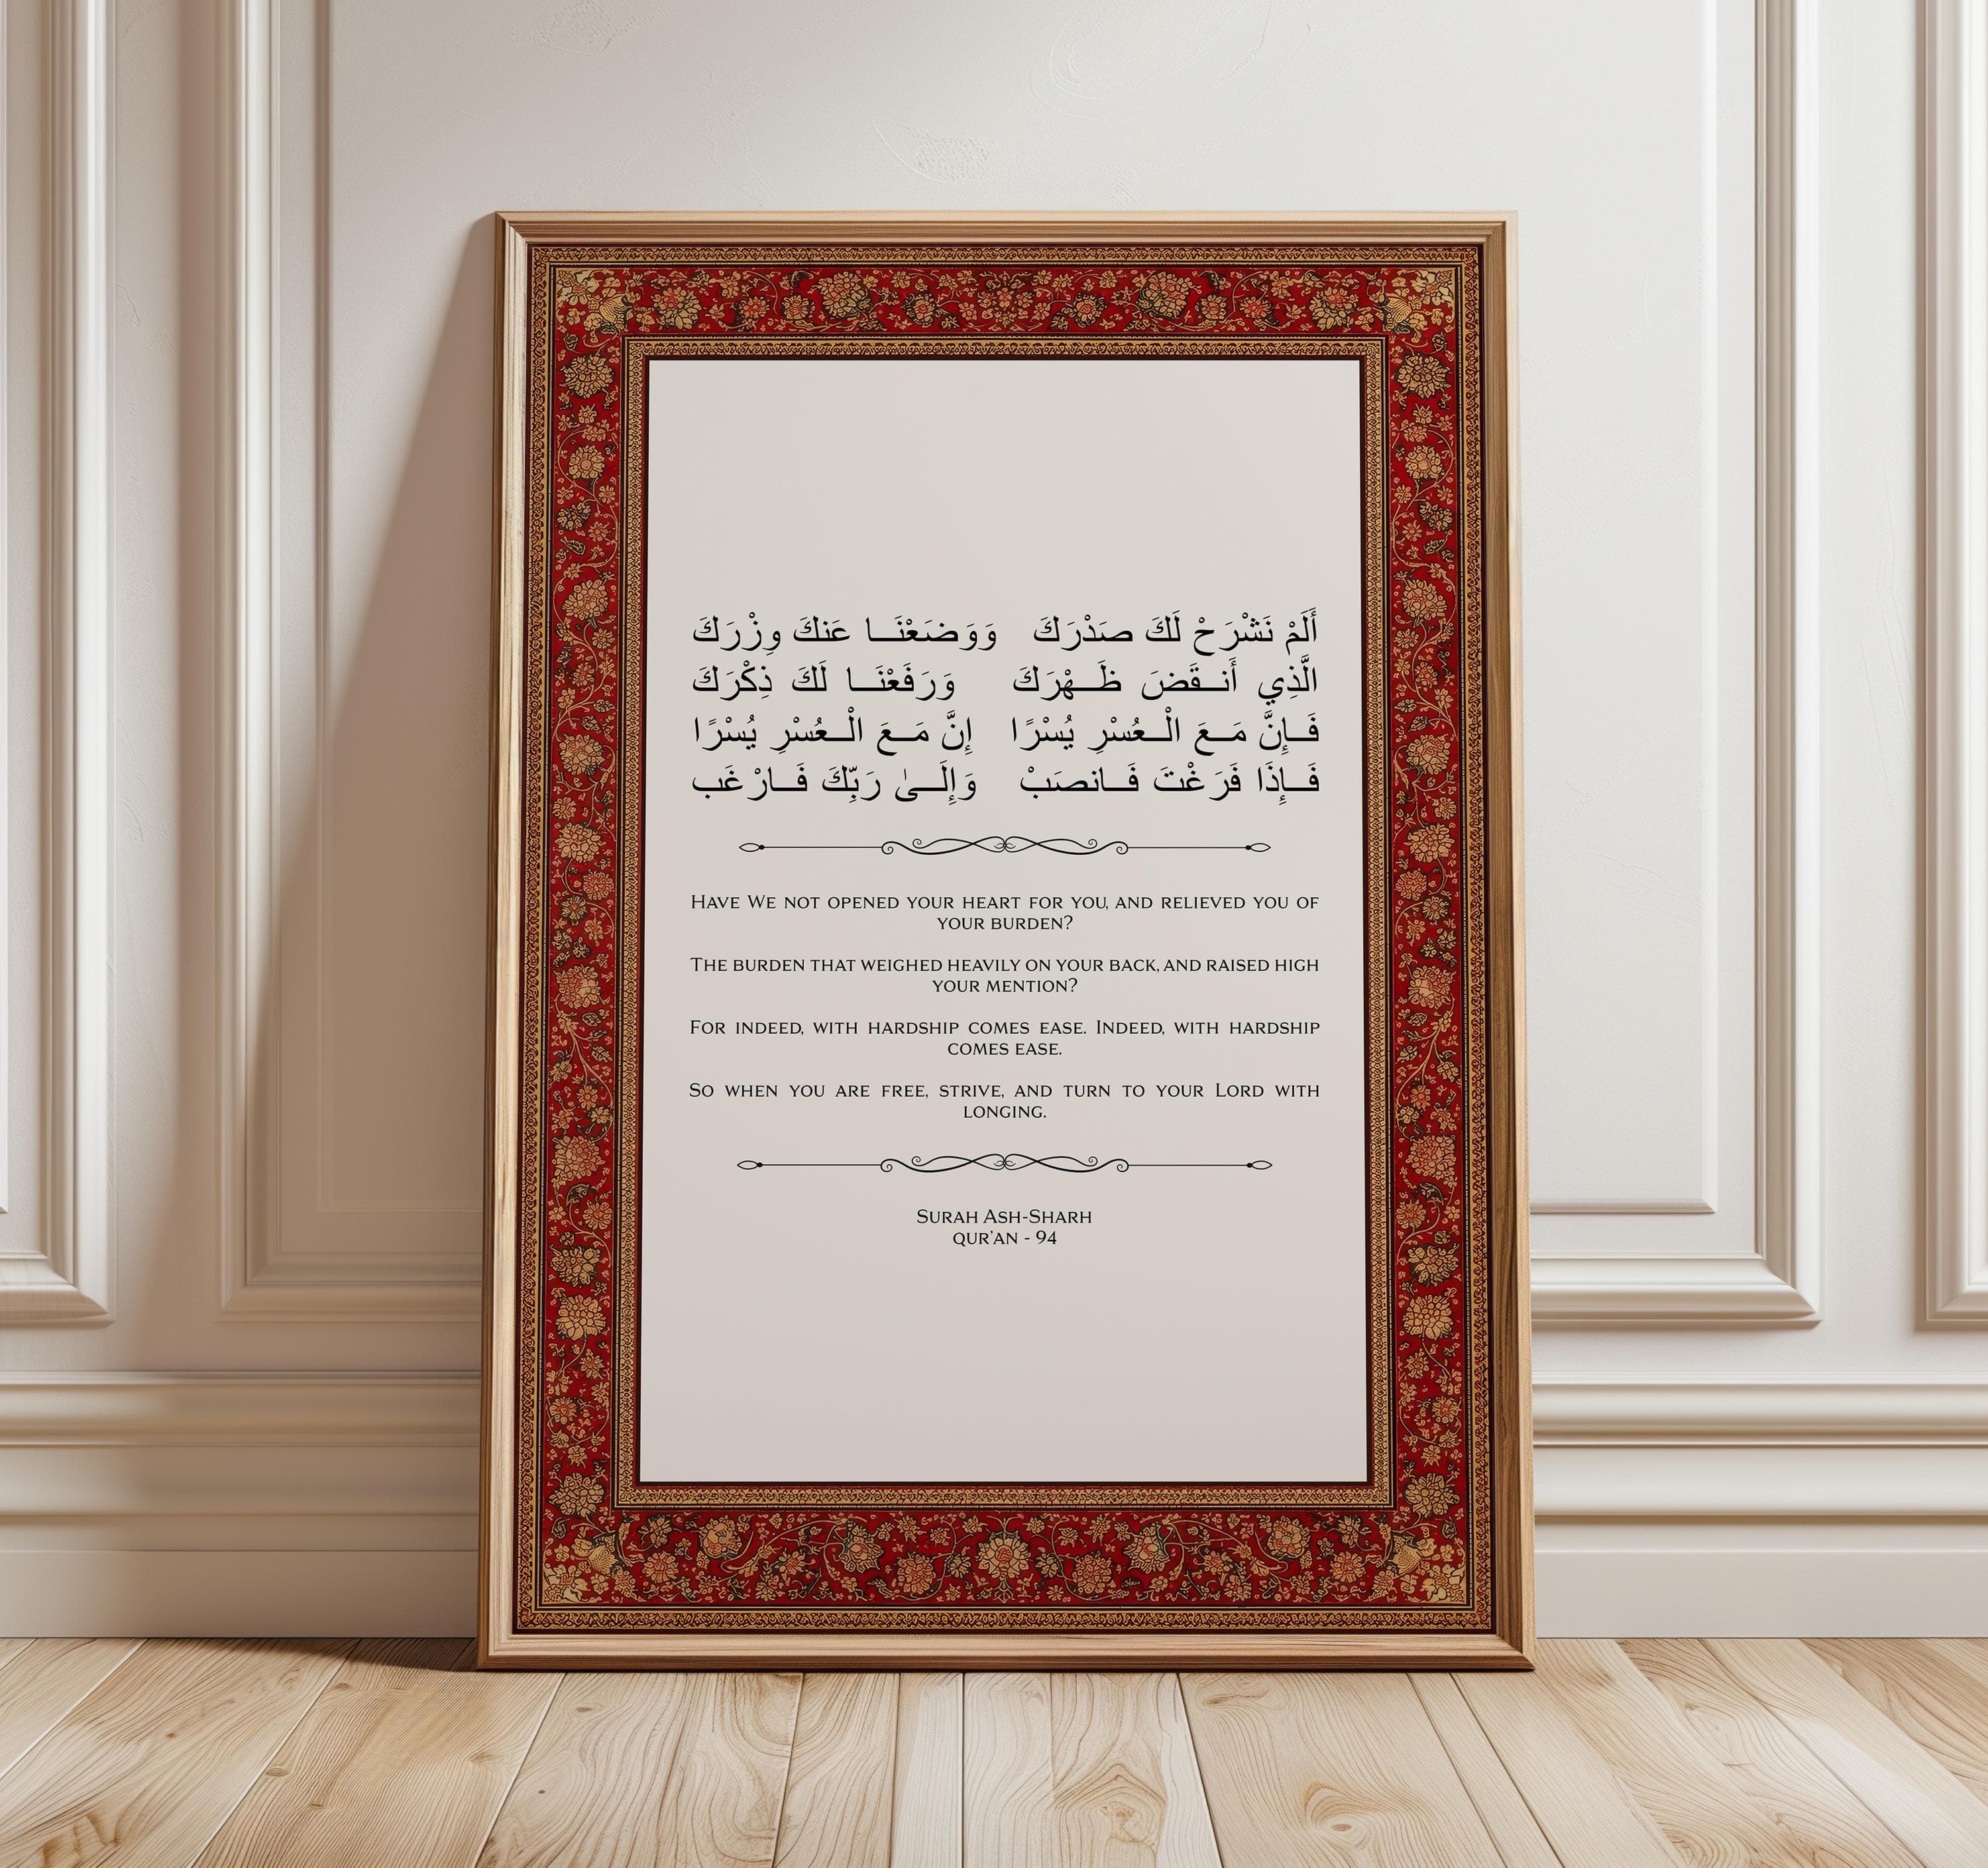 أَلَمْ نَشْرَحْ لَكَ صَدْرَكَ وَوَضَعْنَــا عَنكَ وِزْرَكَ
الَّذِي أَنــقَضَ ظَــهْرَكَ وَرَفَعْنَــا لَكَ ذِكْرَكَ
فَــإِنَّ مَــعَ الْــعُسْرِ يُسْرًا إِنَّ مَــعَ الْــعُسْرِ يُسْرًا
فَــإِذَا فَرَغْتَ فَــانصَبْ وَإِلَــىٰ رَبِّكَ فَــارْغَب
Have We not opened your heart for you, and relieved you of
your burden?
The burden that weighed heavily on your back, and raised high
your mention?
For indeed, with hardship comes ease. Indeed, with hardship
comes ease.
So when you are free, strive, and turn to your Lord with
longing.
Surah Ash-Sharh
qur'an - 94